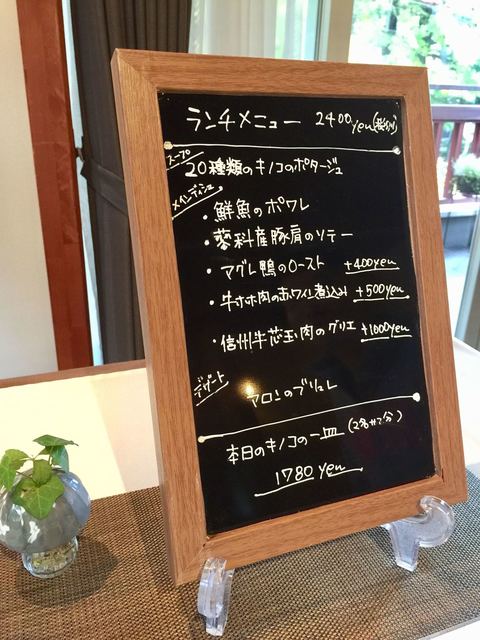 ランチメニュー 2400yen(税別)
スープ
20種類のキノコのポタージュ
メインディッシュ
・鮮魚のポワレ
・蓼科産豚肩のソテー
・マグレ鴨のロースト +400yen
・牛ホホ肉の赤ワイン煮込み +500yen
・信州牛芯玉肉のグリエ +1000yen
デザート
マロンのブリュレ
本日のキノコの一皿
1780yen